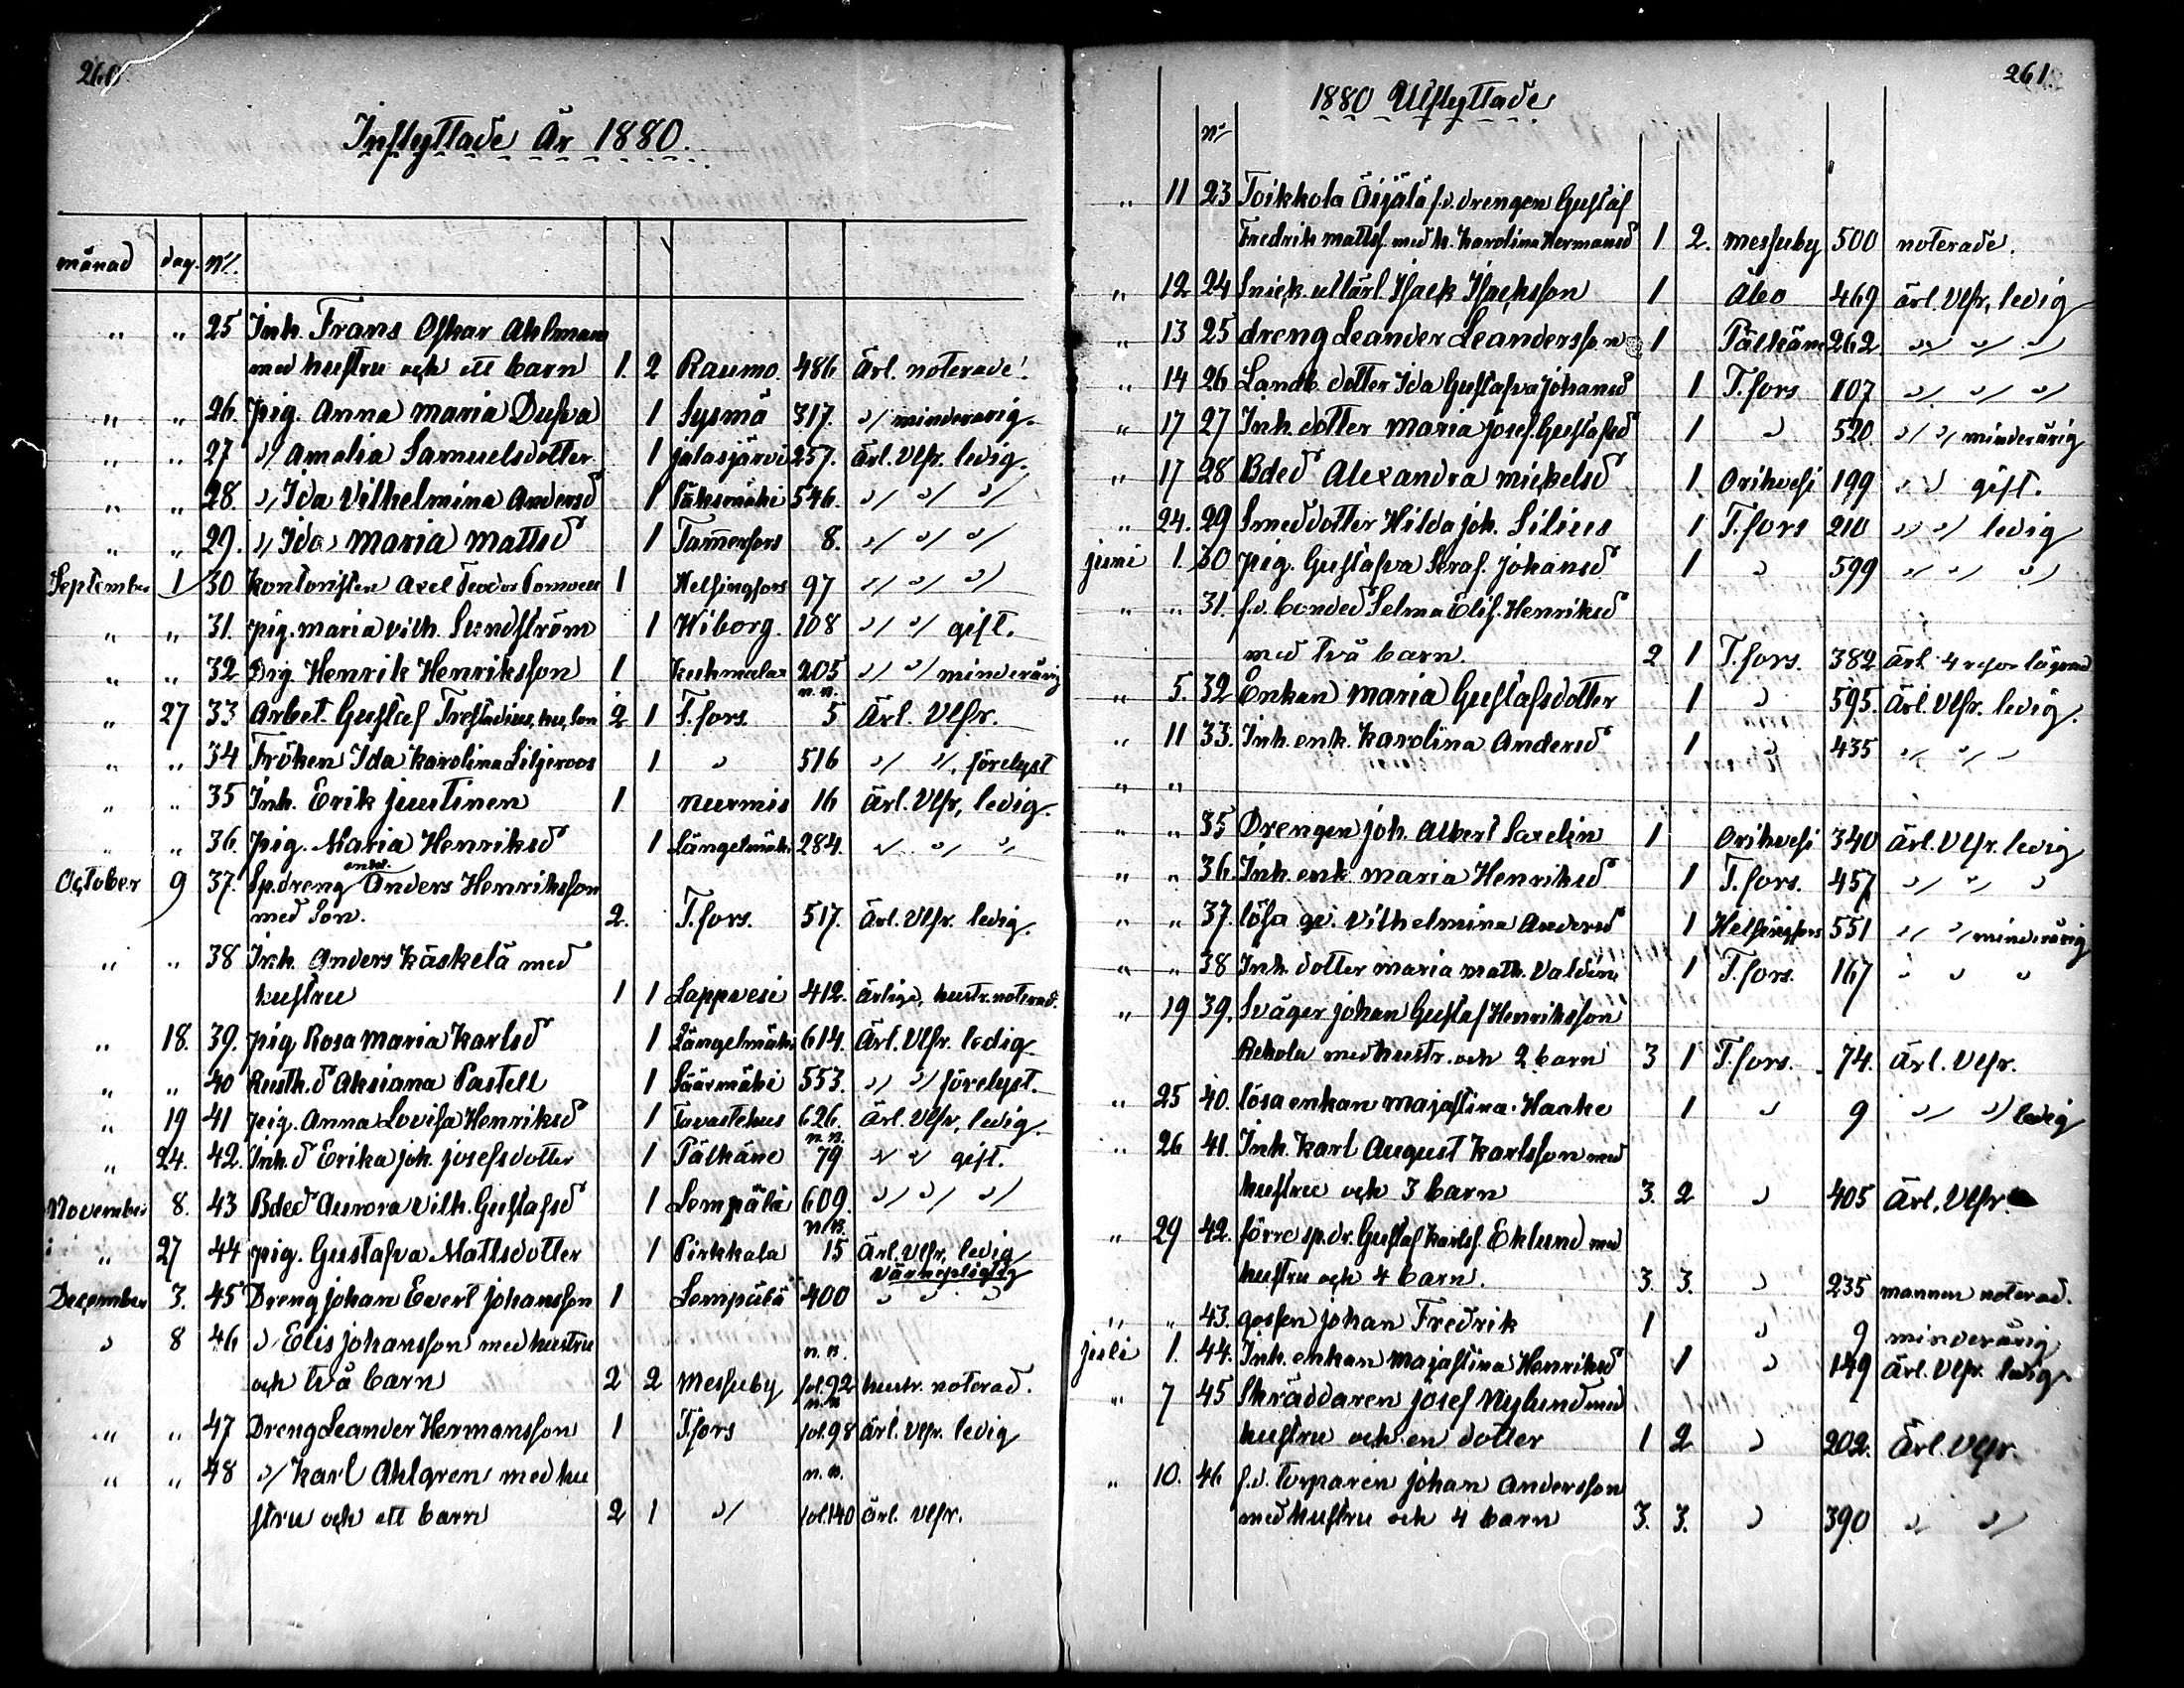 260
Inflyttade År 1880.
månad dag. No.
" " 25 Inh. Frans Oskar Ahlman
med hustru och ett barn 1. 2 Raumo. 486 Ärl. noterade.
" " 26. pig. Anna Maria Dufva 1 Sysmä 317. " minderårig.
" " 27 " Amalia Samuelsdotter. 1 Jalasjärvi 257. Ärl. Vlfr. ledig.
" " 28. " Ida Vilhelmina Andersd 1 Sääksmäki 546. " " "
" " 29. " Ida Maria Mattsd 1 Tammerfors 8. " " "
September 1 30 kontoristen Axel Teodor 1 Helsingfors 97 " " "
" " 31. pig. Maria Vilh. Sundström 1 Wiborg. 108 " " gift.
" " 32 Drg Henrik Henriksson 1 Kuhmalax 205 " " minderårig
n.B.
" 27 33 Arbet. Gustaf Trestadius, hu, son 2 1 T.fors. 5 Ärl. Vlfr.
" " 34 Fröken Ida Karolina Liljeroos 1 " 516 " ", förelyst
" " 35 Inh. Erik Juutinen 1. Nurmis 16 Ärl. Vlfr, ledig.
" " 36. pig. Maria Henriksd 1 Längelmäki 284. " " "
October 9 37. Sp.dreng enkl. Anders Henriksson
med son. 2. T.fors. 517. Ärl. Vlfr. ledig.
" " 38 Inh. Anders Käskelä med
hustru 1 1 Lappvesi 412. ärlige, hustr. noterad.
" 18. 39. pig Rosa Maria Karlsd 1 Längelmäki 614. Ärl. Vlfr. ledig.
" " 40 Rusth.d Aksiana Pastell 1 Säärmäki 553. " " förelyst.
" 19 41 pig. Anna Lovisa Henriksd 1 Tavastehus 626. Ärl. Vlfr, ledig.
n.B.
" 24. 42. Inh.d Erika Joh. Josefsdotter 1 Pälkäne 79 " " gift.
November 8. 43 Bded Aurora Vilh. Gustafsd 1 Lempälä 609. " " "
n.B.
" 27 44 pig. Gustafva Mattsdotter 1 Pirkkala 15 Ärl. Vlfr, ledig
värnepligtig
December 3. 45 Dreng Johan Evert Johansson 1 Lempälä 400 " " "
" 8 46 " Elis Johansson med hustru
n.B.
och två barn 2 2 Messuby fol.92 hustr. noterad.
n.B.
" " 47 Dreng Leander Hermansson 1 T.fors fol.98 Ärl. Vlfr. ledig
" " 48 " Karl Ahlgren med hu
n.B.
stru och ett barn 2 1 " fol.140 ärl. vlfr.
261
1880 Utflyttade
No
" 11 23 Toikkola Äijälä f.d. drengen Gustaf
Fredrik Mattss. med h. Karolina Hermansd 1 2. Messuby 500 noterade.
" 12 24 Snick. utlärl. Isack Isacksson 1 Åbo 469 ärl. Vlfr, ledig
" 13 25 dreng Leander Leandersson 1 Pälkäne 262. " " "
" 14 26 Landb. dotter Ida Gustafva Johansd 1 T.fors 107 " " "
" 17 27 Inh. dotter Maria Josef. Gustafsd 1 " 520 " " minderårig
" 17 28 Bded Alexandra Mickelsd 1. Orihvesi 199 " " gift.
" 24. 29 Smed dotter Hilda Joh. Silius 1 T.fors 210 " " ledig
juni 1. 30 pig. Gustafva Seraf. Johansd 1 " 599 " " "
" " 31. f.d. bonded Selma Elis. Henriksd
med två barn. 2 1 T.fors. 382 Ärl.
" 5. 32 Enkan Maria Gustafsdotter 1 " 595. Ärl. Vlfr. ledig.
" 11 33. Inh. enk. Karolina Andersd 1 " 435 " " "
" "
" " 35 Drengen Joh. Albert Saxelin 1 Orihvesi 340 Ärl. Vlfr. ledig
" " 36. Inh. enk. Maria Henriksd 1 T.fors. 457 " " "
" " 37. lösa qv. Vilhelmina Andersd 1 Helsingfors 551 " " minderårig
" " 38 Inh. dotter Maria Math. Valdin 1 T.fors. 167 " " "
" 19 39. Sväger Johan Gustaf Henriksson
Rekola med hustr. och 2 barn 3 1 T.fors. 74. Ärl. Vlfr.
" 25 40. lösa enkan Majastina Haake 1 " 9 " " ledig
" 26 41. Inh. Karl August Karlsson med
hustru och 3 barn 3. 2 " 405 Ärl. Vlfr.
" 29 42. förre sp.dr. Gustaf Karlss. Eklund med
hustru och 4 barn. 3. 3. " 235 mannen noterad.
" " 43. gossen Johan Fredrik 1 " 9 minderårig
juli 1. 44. Inh. enkan Majastina Henriksd 1 " 149 Ärl. Vlfr. ledig.
" 7 45 Skräddaren Josef Nylund med
hustru och en dotter 1 2 " 202. Ärl. Vlfr.
" 10. 46 f.d. torparen Johan Andersson
med hustru och 4 barn 3. 3. " 390 " "